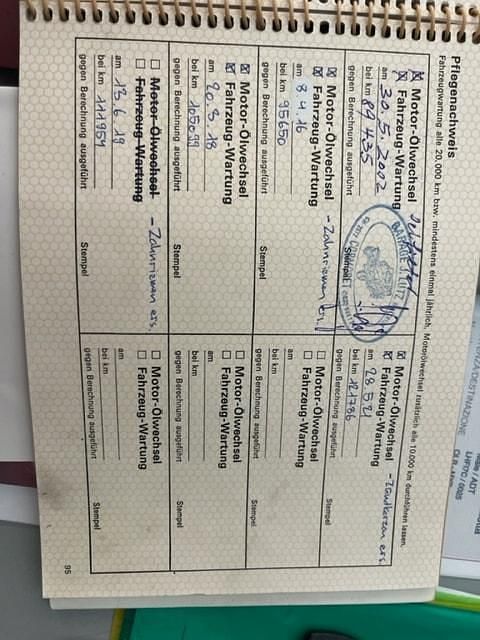 Pflegenachweis
Fahrzeugwartung alle 20.000 km bzw. mindestens einmal jährlich, Motorölwechsel zusätzlich alle 10.000 km durchführen lassen.
☒ Motor-Ölwechsel
☒ Fahrzeug-Wartung
am 30.5.2002
bei km 89 435
gegen Berechnung ausgeführt
Stempel
GARAGE J. LUTZ
☒ Motor-Ölwechsel - Zahnriemen ers.
☒ Fahrzeug-Wartung
am 8.4.16
bei km 95650
gegen Berechnung ausgeführt
☒ Motor-Ölwechsel
☒ Fahrzeug-Wartung
am 20.3.18
bei km 105099
gegen Berechnung ausgeführt
Stempel
☐ Motor-Ölwechsel - Zahnriemen ers.
☐ Fahrzeug-Wartung
am 13.6.19
bei km 111954
gegen Berechnung ausgeführt
Stempel
☒ Motor-Ölwechsel - Zündkerzen ers.
☒ Fahrzeug-Wartung
am 28.5.21
bei km 121786
gegen Berechnung ausgeführt
Stempel
☐ Motor-Ölwechsel
☐ Fahrzeug-Wartung
am
bei km
gegen Berechnung ausgeführt
Stempel
☐ Motor-Ölwechsel
☐ Fahrzeug-Wartung
am
bei km
gegen Berechnung ausgeführt
Stempel
☐ Motor-Ölwechsel
☐ Fahrzeug-Wartung
am
bei km
gegen Berechnung ausgeführt
Stempel
95
DESTINAZIONE
/ ADT
LHP0C / 0025